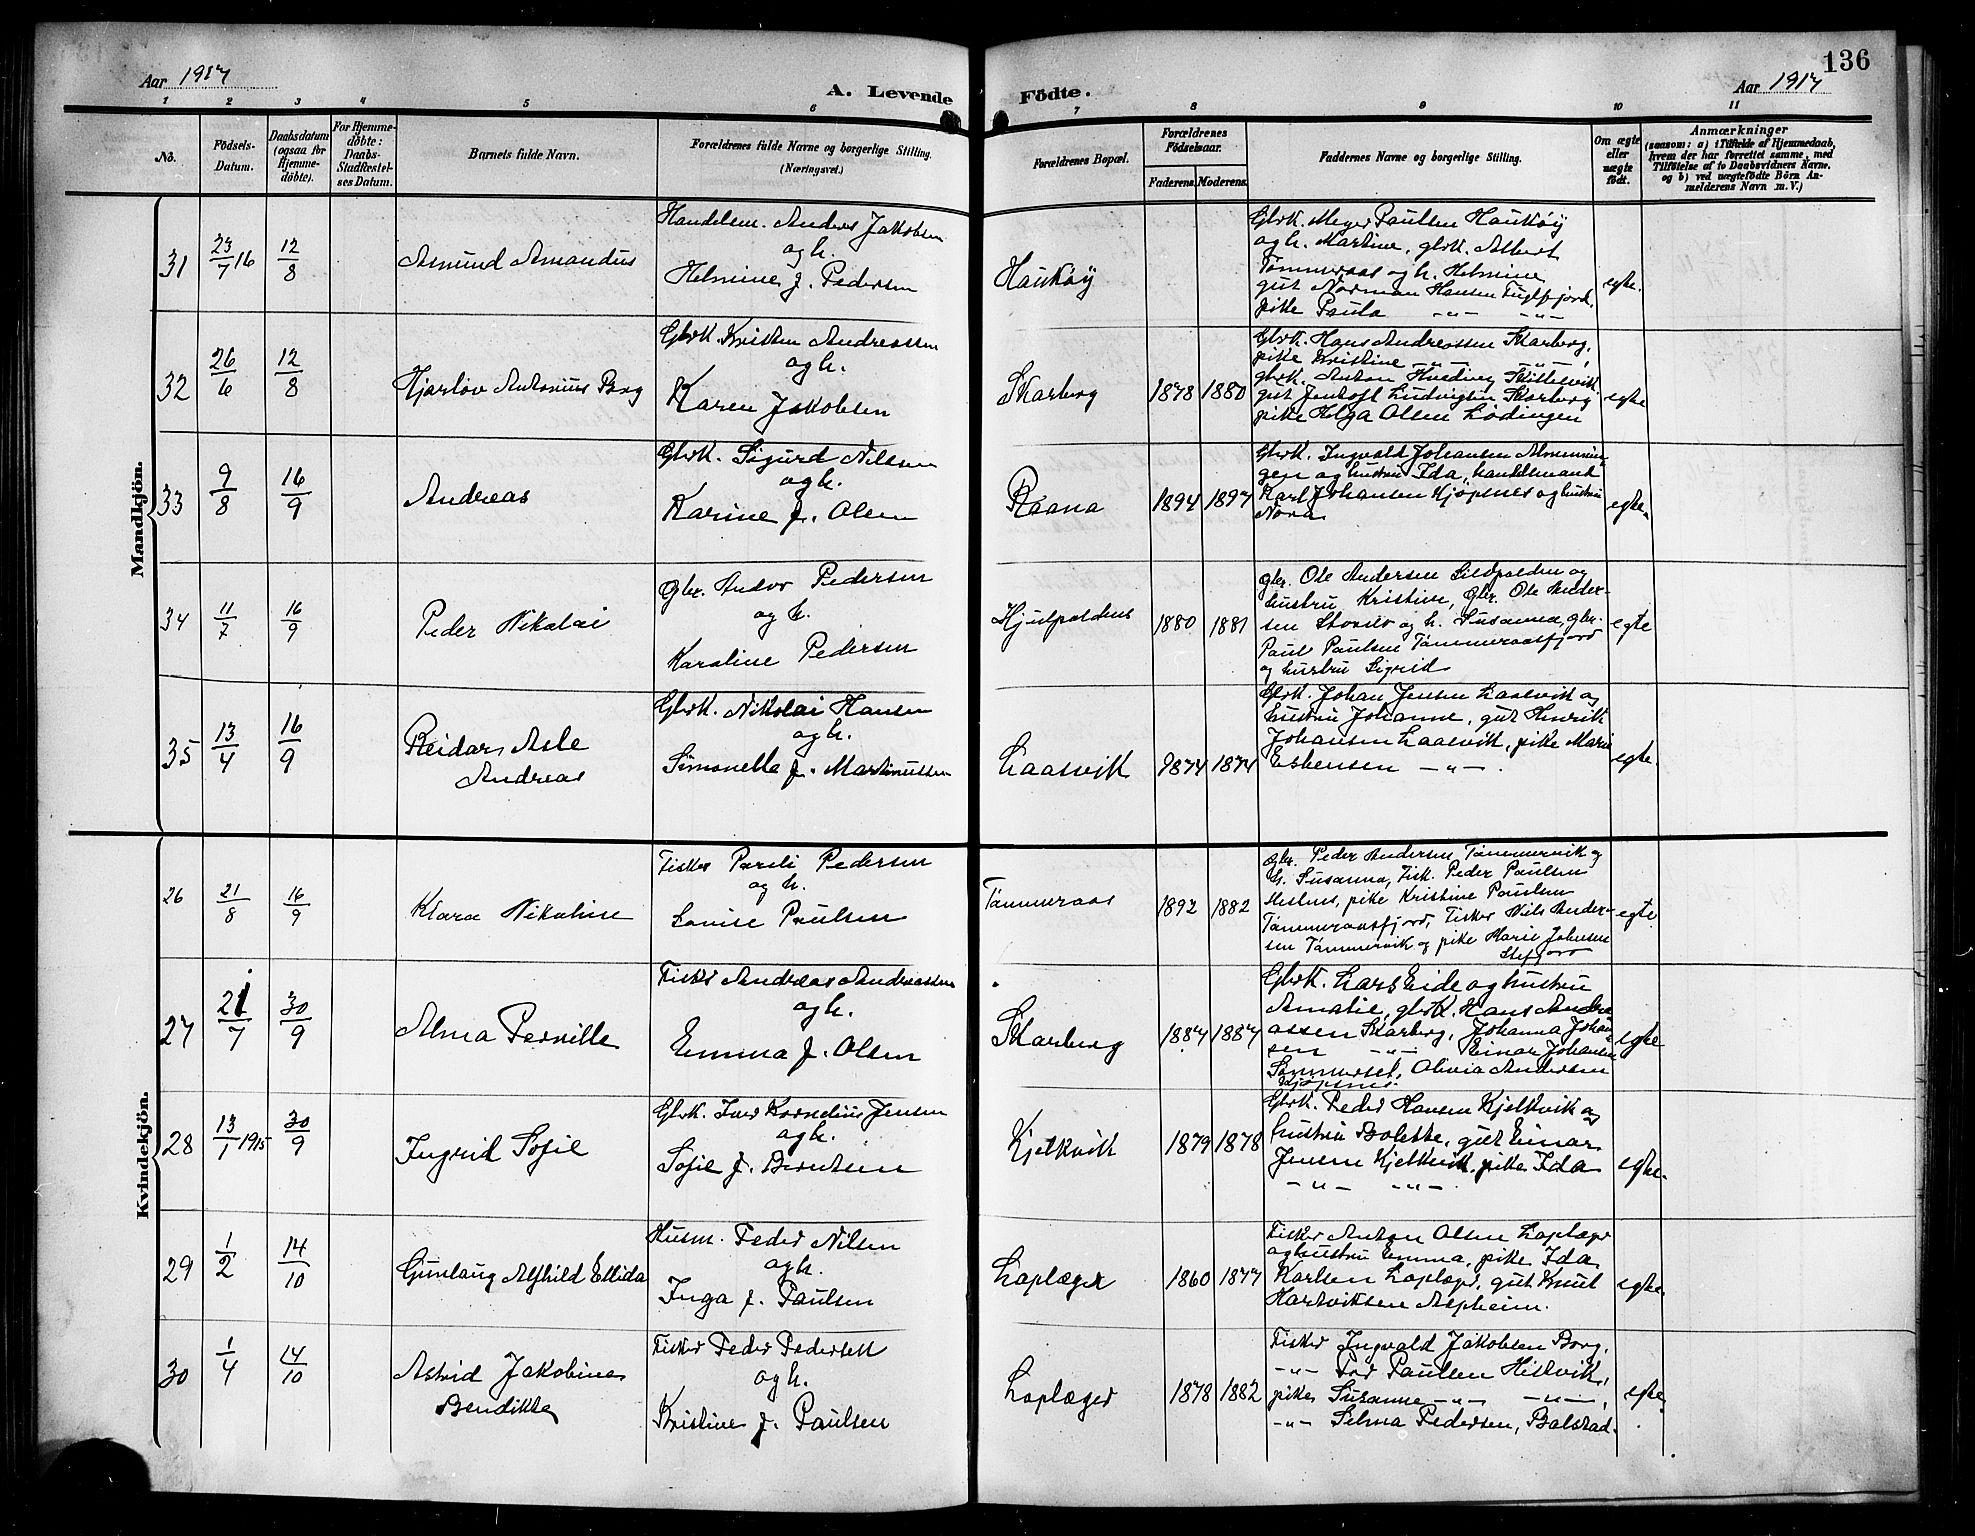 136
Aar 1917
A. Levende Födte.
Aar 1917
1 2 3 4 5 6 7 8 9 10 11
No.
Födsels-
Datum.
Daabsdatum
(ogsaa for
Hjemme-
döbte).
For Hjemme-
döbte:
Daabs-
Stadfæstel-
ses Datum.
Barnets fulde Navn.
Forældrenes fulde Navne og borgerlige Stilling.
(Næringsvei.)
Forældrenes Bopæl.
Forældrenes
Födselsaar.
Faderens. Moderens.
Faddernes Navne og borgerlige Stilling.
Om ægte
eller
uægte
födt.
Anmærkninger
(saasom: a) i Tilfælde af Hjemmedaab,
hvem der har forrettet samme, med
Tilföielse af to Daabsvidners Navne.
og b) ved uægtefödte Börn An-
melderens Navn m. V.)
Mandkjön.
31
23/7 16
12/8
Amund Amandus
Handelsm. Anders Jakobsen
og h.
Helmine f. Pedersen
Haukøy
Gbrk. Meyer Paulsen Haukøy
og h. Martine, gbrk. Albert
Tømmeraas og h. Helmine
gut Norman Hansen Fuglfjord,
pike Paula -"- -"-
egte.
32
26/6
12/8
Hjarlov Antonius Borg
Gbrk. Kristen Andreassen
og h.
Karen Jakobsen
Skarberg
1878 1880
Gbrk. Hans Andreassen Skarberg,
pike Kristine -"- -"-,
gbrk. Anton Skittesvik
gut Jentoft Ludvigsen Skarberg
pike Helga Olsen Lødingen
egte
33
9/8
16/9
Andreas
Gbrk. Sigurd Nilsen
og h.
Karine f. Olsen
Raana
1894 1897
Gbrk. Ingvald Johansen
gen og hustru Ida, handelsmand
Karl Johansen Kjøpsnes og hustru
Nora
egte.
34
11/7
16/9
Peder Nikolai
Gbr. Andor Pedersen
og h.
Karoline Pedersen
Hjulpoldens
1880 1881
Gbr. Ole Andersen Sildpolden og
hustru Kristine, Gbr. Ole Ander-
sen og h. Susanna, gbr.
Paul Paulsen Tømmeraasfjord
og hustru Sigrid
egte
35
13/4
16/9
Reidar Asle
Andreas
Gbrk. Nikolai Hansen
og h.
Simonella f. Martinussen
Laasvik
1874 1874
Gbrk. Johan Jensen Laasvik og
hustru Johanne, gut Henrik
Johansen Laasvik, pike Marie
Esbensen -"-.
egte.
Kvindekjön.
26
21/8
16/9
Klara Nikoline
Fisker Pareli Pedersen
og h.
Lovise Paulsen
Tømmeraas
1892 1882
Gbr. Peder Andersen Tømmervik og
h. Susanna, Fisk. Peder Paulsen
pike Kristine Paulsen
Tømmeraasfjord, Fisker Nils Ander-
sen Tømmervik og pike Marie Johnsen
Stefjord
egte
27
21/7
30/9
Alma Pernille
Fisker Andreas Andreassen
og h.
Emma f. Olsen
Skarberg
1884 1884
Gbrk. Lars Eide og hustru
Amalie, gbrk. Hans Andre
assen Skarberg, Johanna Johan
sen -"- Einar Johansen
Sommerset, Olivia Andersen
Kjøpsnes.
egte
28
13/1 1915
30/9
Ingrid Sofie
Gbrk. Iver Kornelius Jensen
og h.
Sofie f. Berntsen
Kjelkvik
1879 1878
Gbrk. Peder Hansen Kjelkvik og
hustru Bolette, gut Einar
Jensen Kjelkvik, pike Ida
-"- -"-.
egte.
29
1/2
14/10
Gunlaug Alfhild Ellida
Husm. Peder Nilsen
og h.
Inga f. Paulsen
Laplæger
1860 1877
Fisker Anton Olsen Laplæger
og hustru Emma, pike Ida
Karlsen Laplæger, gut Knut
Hartviksen Aspheim.
egte.
30
1/4
14/10
Astrid Jakobine
Bendikke
Fisker Peder Pedersen
og h.
Kristine f. Paulsen
Laplæger
1878 1882
Fisker Ingvald Jakobsen Borg,
-"- Paulsen Hillvik,
pike Susanne -"- -"-,
-"- Selma Pedersen, Balstad.
egte.